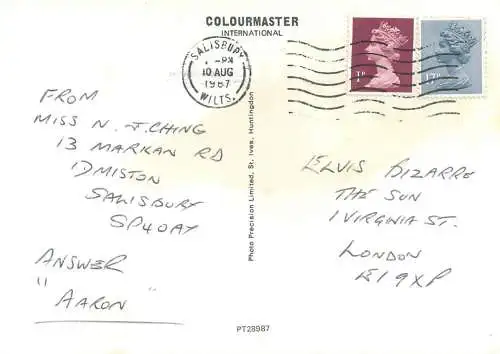 COLOURMASTER
INTERNATIONAL
SALISBURY
-PM
10 AUG
1987
WILTS.
1P
17P
FROM
MISS N. J. CHING
13 MARKAN RD
IDMISTON
SALISBURY
SP4 0AY
ANSWER
"AARON"
Photo Precision Limited, St. Ives, Huntingdon
ELVIS BIZARRE
THE SUN
1 VIRGINIA ST.
LONDON
E1 9XP
PT28987